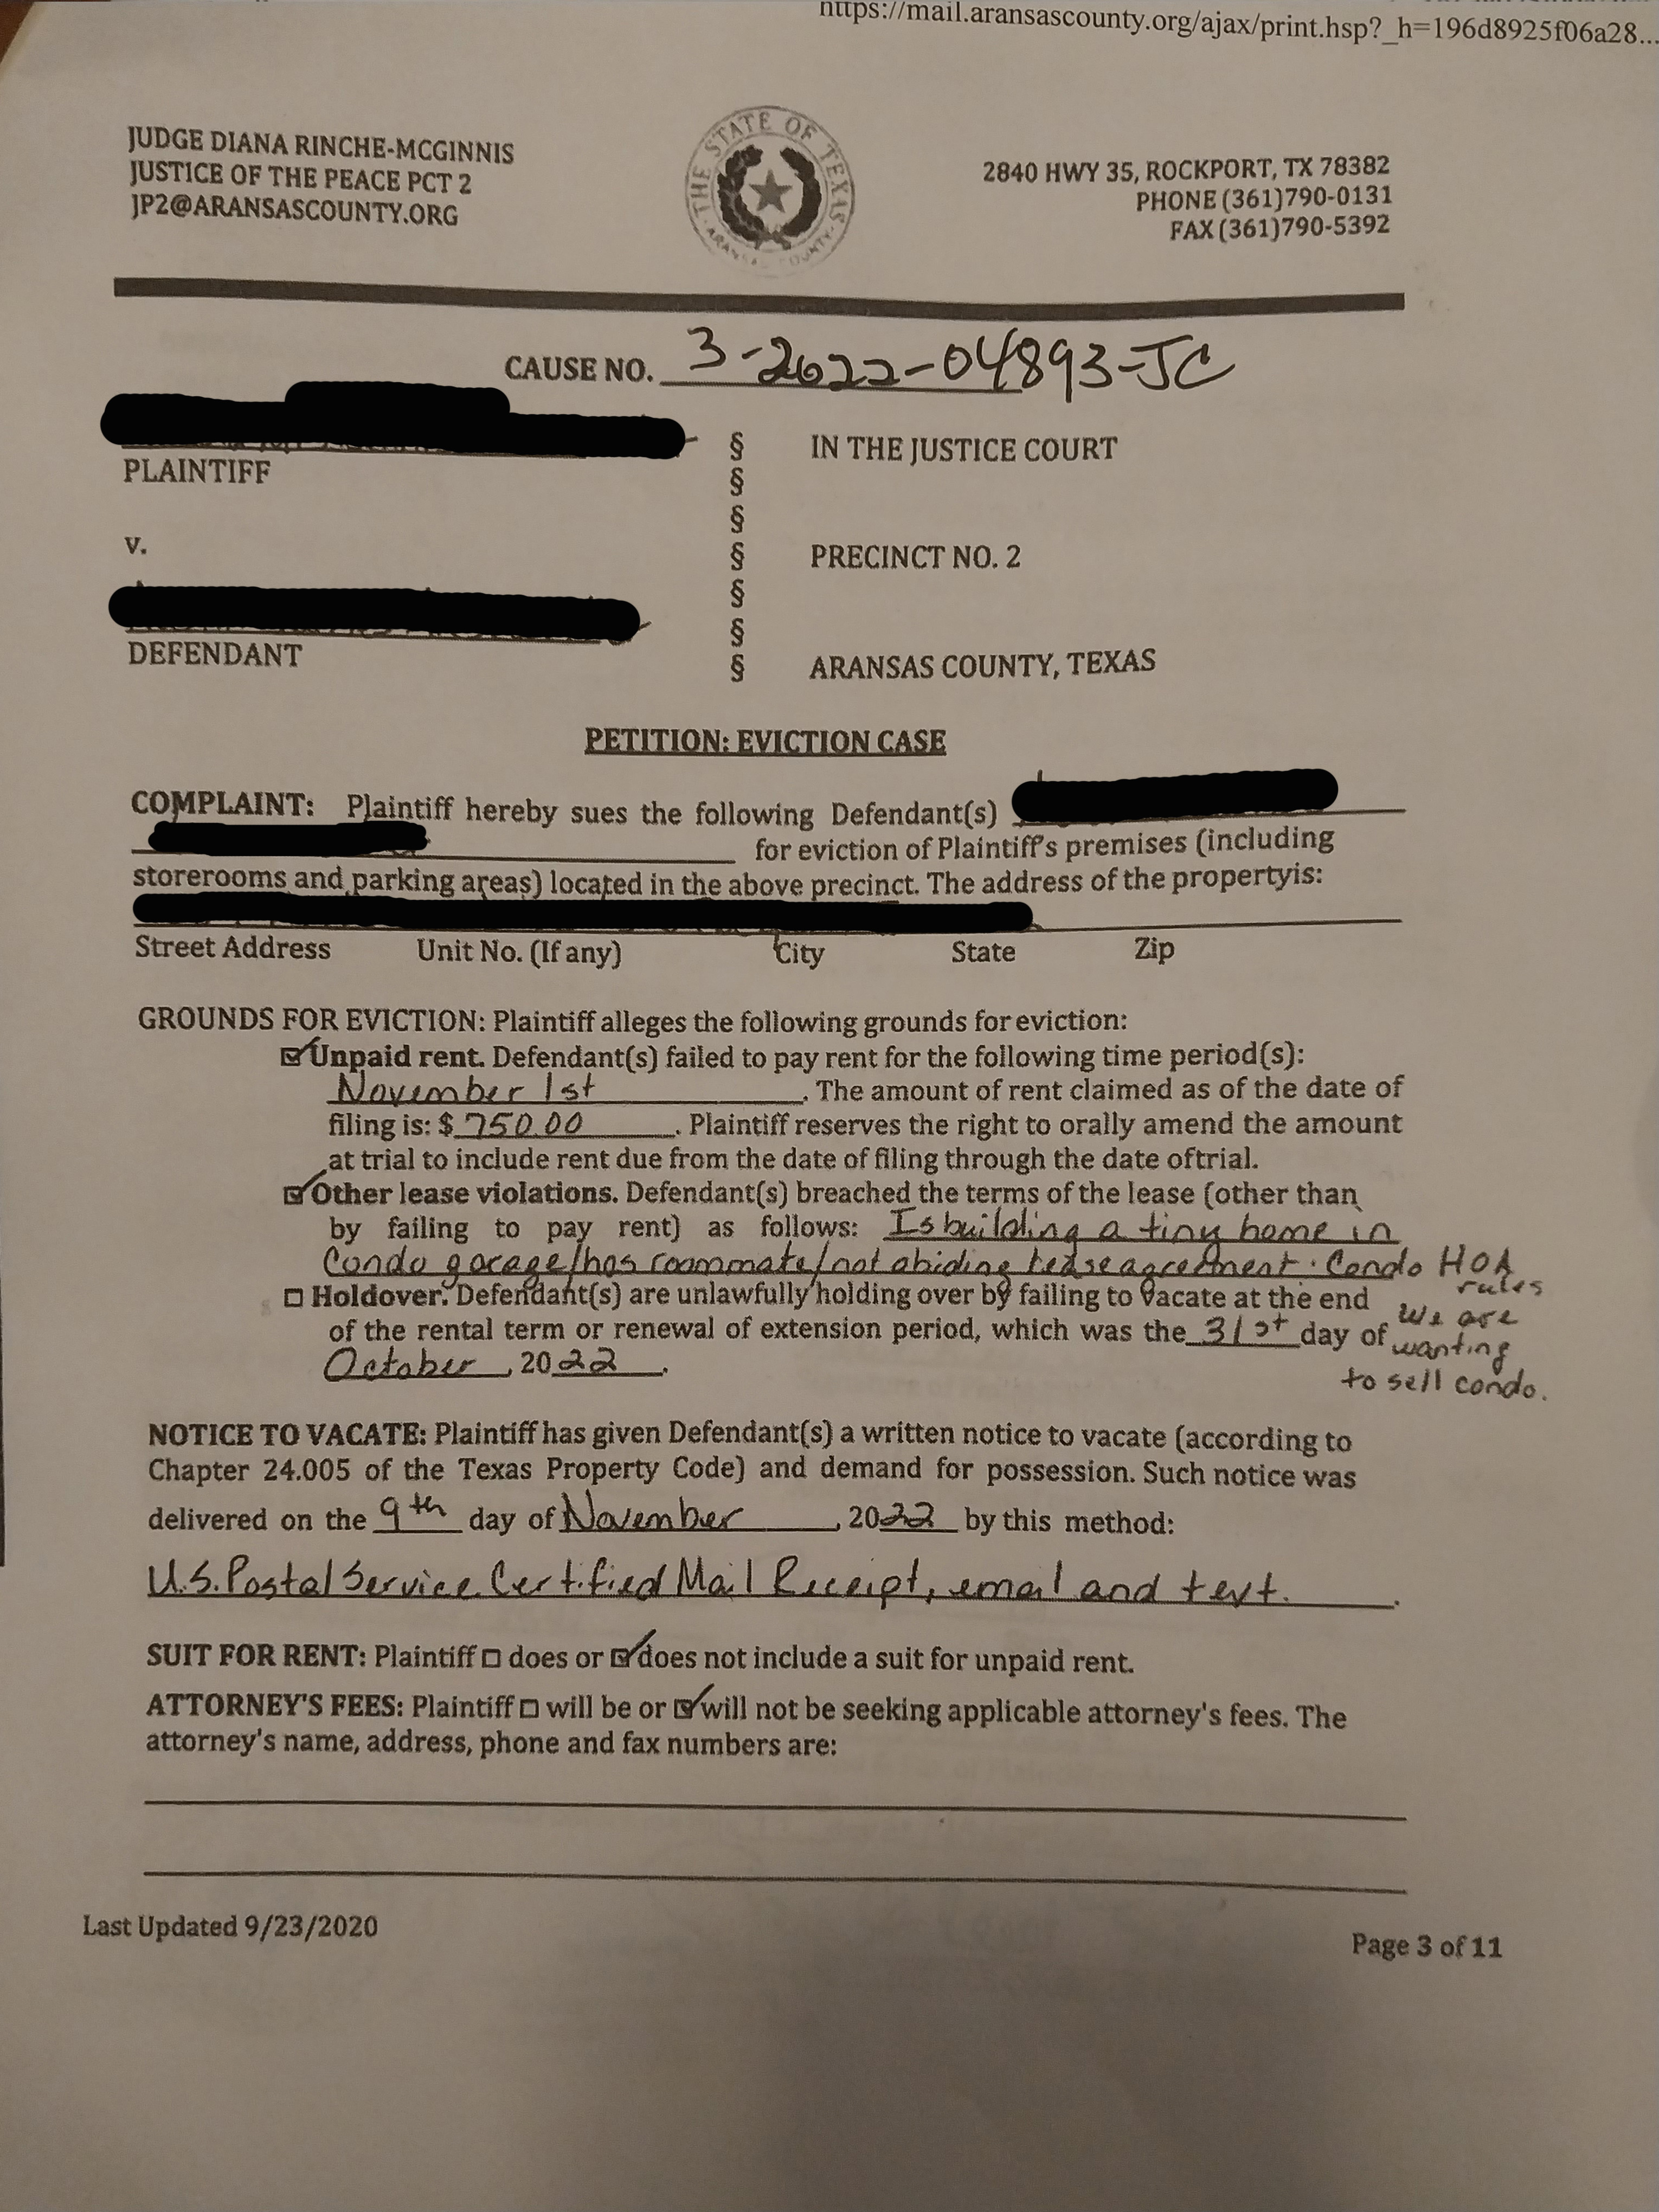 https://mail.aransascounty.org/ajax/print.hsp?_h=196d8925f06a28...
JUDGE DIANA RINCHE-MCGINNIS
JUSTICE OF THE PEACE PCT 2
JP2@ARANSASCOUNTY.ORG
THE STATE OF TEXAS
ARANSAS COUNTY
2840 HWY 35, ROCKPORT, TX 78382
PHONE (361)790-0131
FAX (361)790-5392
CAUSE NO. 3-2022-04893-JC
PLAINTIFF
v.
DEFENDANT
§ IN THE JUSTICE COURT
§
§
§ PRECINCT NO. 2
§
§
§ ARANSAS COUNTY, TEXAS
PETITION: EVICTION CASE
COMPLAINT: Plaintiff hereby sues the following Defendant(s)
for eviction of Plaintiff's premises (including
storerooms and parking areas) located in the above precinct. The address of the propertyis:
Street Address Unit No. (If any) City State Zip
GROUNDS FOR EVICTION: Plaintiff alleges the following grounds for eviction:
☑ Unpaid rent. Defendant(s) failed to pay rent for the following time period(s):
November 1st. The amount of rent claimed as of the date of
filing is: $ 750.00. Plaintiff reserves the right to orally amend the amount
at trial to include rent due from the date of filing through the date oftrial.
☑ Other lease violations. Defendant(s) breached the terms of the lease (other than
by failing to pay rent) as follows: Is building a tiny home in
Condo garage/has roommate/not abiding lease agreement. Condo HOA
rules
☐ Holdover. Defendant(s) are unlawfully holding over by failing to vacate at the end
We are
of the rental term or renewal of extension period, which was the 31st day of
wanting
October, 2022.
to sell condo.
NOTICE TO VACATE: Plaintiff has given Defendant(s) a written notice to vacate (according to
Chapter 24.005 of the Texas Property Code) and demand for possession. Such notice was
delivered on the 9th day of November, 2022 by this method:
U.S. Postal Service Certified Mail Receipt, email and text.
SUIT FOR RENT: Plaintiff ☐ does or ☑ does not include a suit for unpaid rent.
ATTORNEY'S FEES: Plaintiff ☐ will be or ☑ will not be seeking applicable attorney's fees. The
attorney's name, address, phone and fax numbers are:
Last Updated 9/23/2020
Page 3 of 11